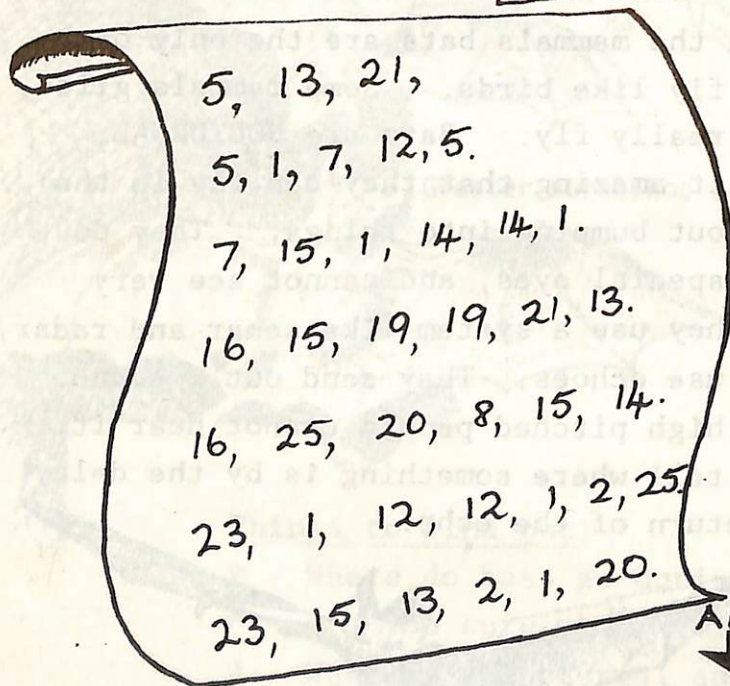 5, 13, 21,
5, 1, 7, 12, 5.
7, 15, 1, 14, 14, 1.
16, 15, 19, 19, 21, 13.
16, 25, 20, 8, 15, 14.
23, 1, 12, 12, 1, 2, 25.
23, 15, 13, 2, 1, 20.